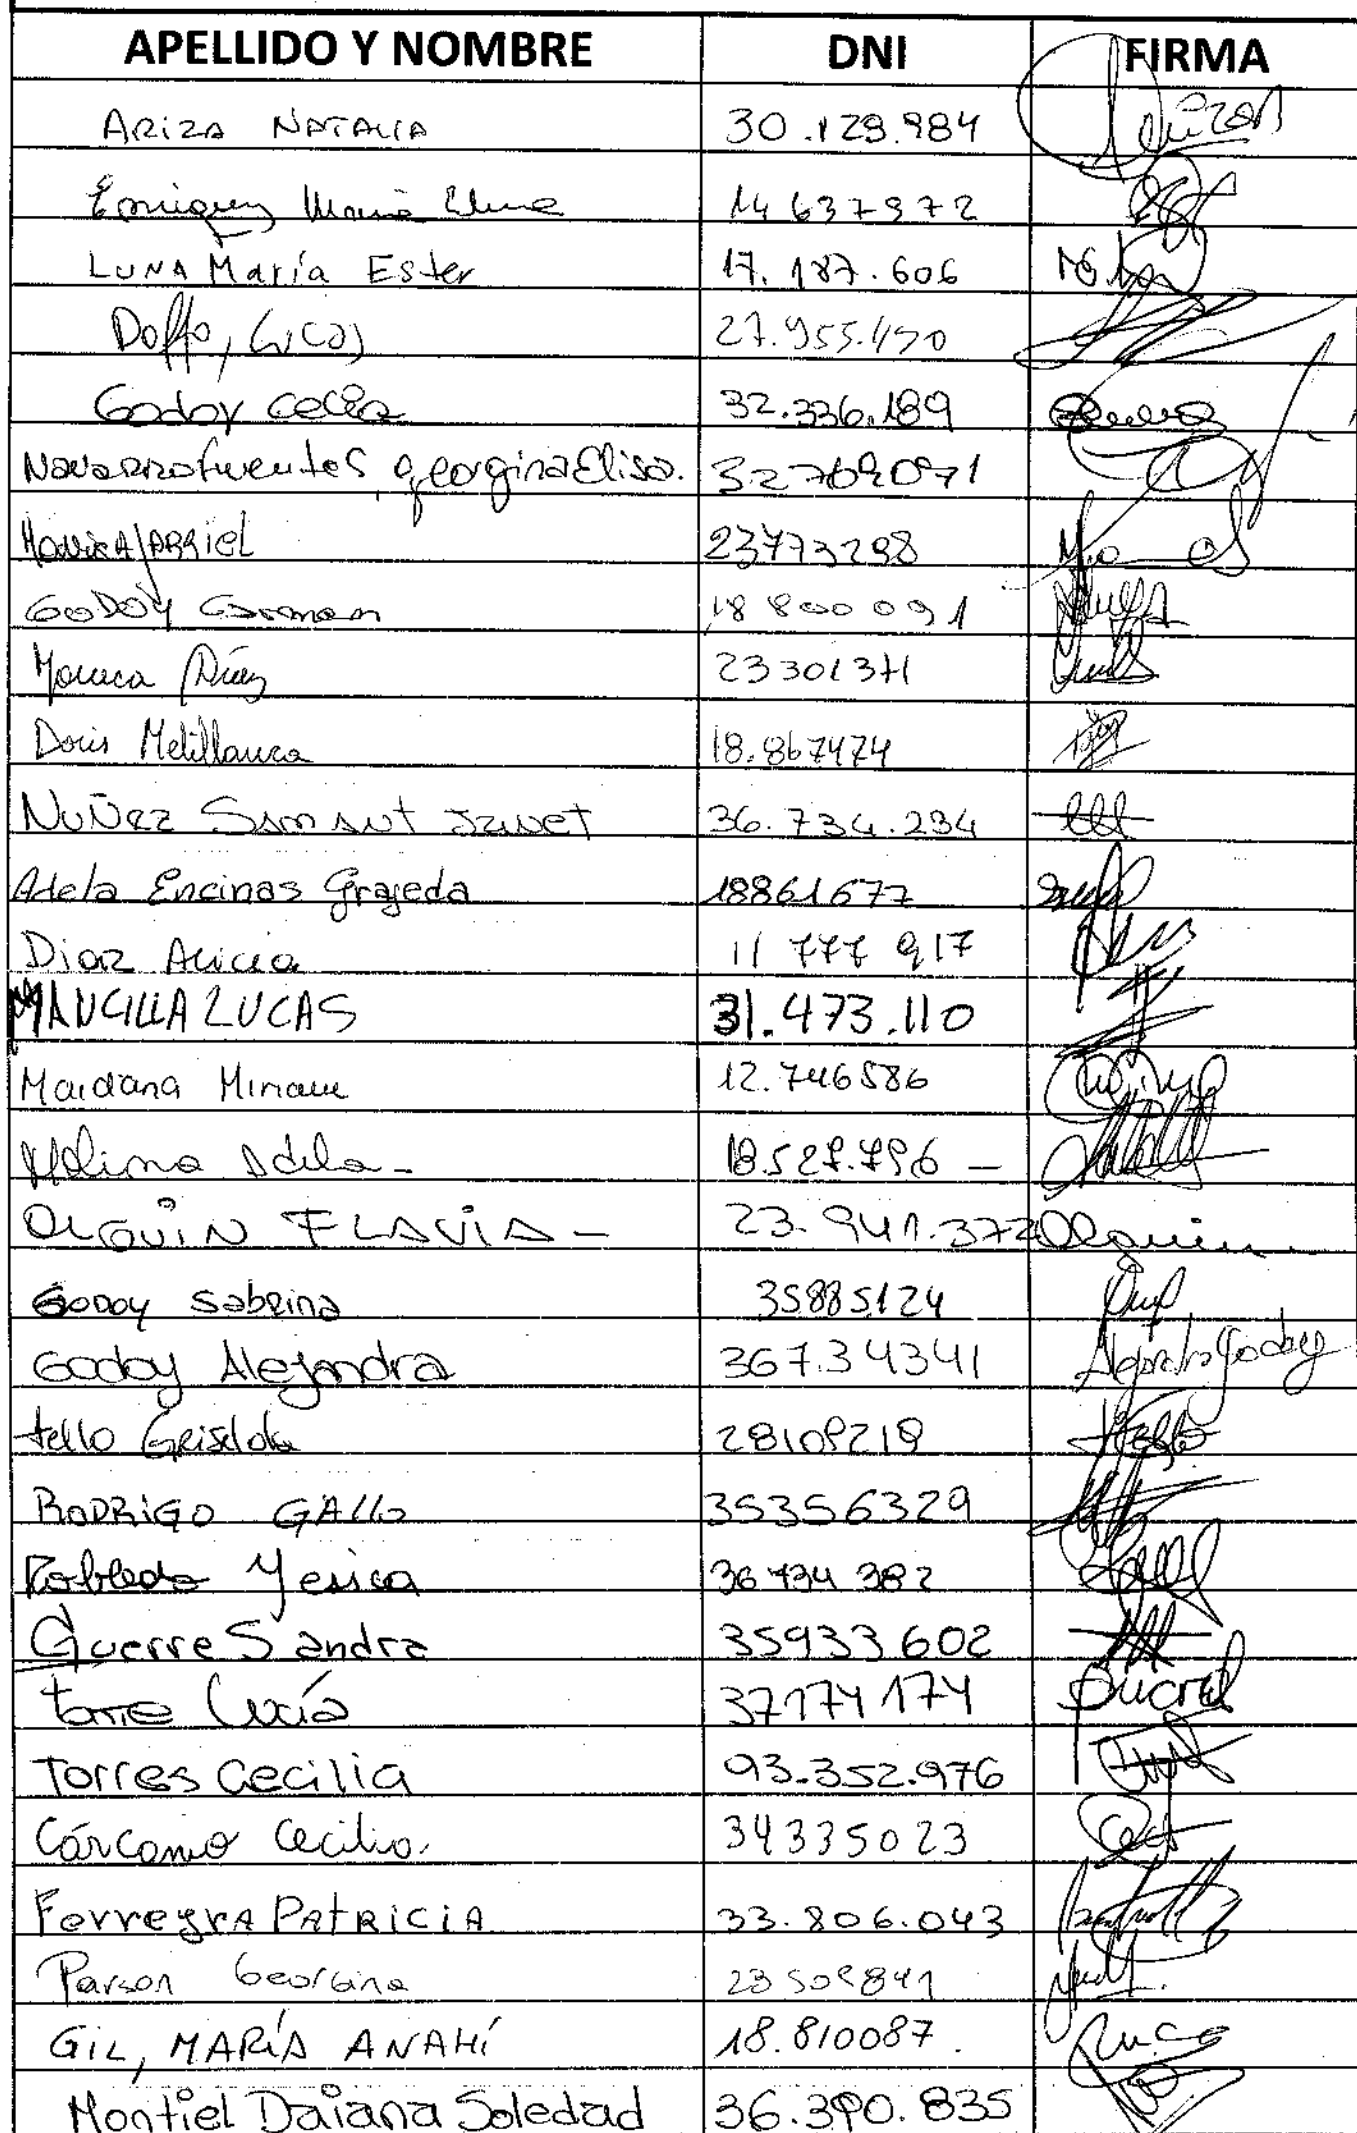 APELLIDO Y NOMBRE DNI FIRMA
ARIZA NATALIA 30.129.984
Enriquez María Elena 14 637972
LUNA María Ester 17.187.606
Doffo, Lucas 27.955.490
Godoy Celia 32.336.189
Navarro fuentes, georgina Elisa. 32769071
23773298
GODOY Carmen 18 800 091
Monica Díaz 23301371
Doris Melillanca 18.867474
NUÑEZ Janet 36.734.234
Adela Encinas Grajeda 18861677
Diaz Alicia 11 777 917
MANCILLA LUCAS 31.473.110
Maidana Miriam 12.746586
Molina Adela - 18.527.796 -
OLGUIN FLAVIA - 23.941.372 Olguin
GODOY Sabrina 35885124
Godoy Alejandra 36734341 Alejandra Godoy
tello Griselda 28109218
RODRIGO GALLO 35356329
Robledo Yesica 36 734 382
Guerre Sandra 35933602
torre Lucía 37174174
Torres Cecilia 93.352.976
Cárcamo Cecilia. 34335023
Ferreyra PATRICIA 33.806.043
Parson Georgina 23509841
GIL, MARÍA ANAHÍ 18.810087.
Montiel Daiana Soledad 36.390.835